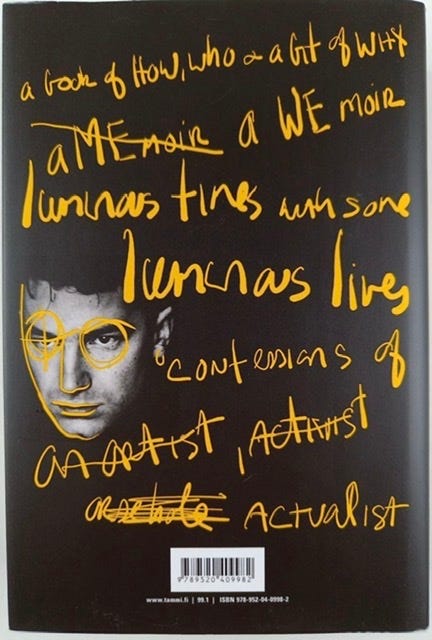 a book of HOW, who & a bit of WHY
a MEmoir a WE moir
luminous times with some
luminous lives
confessions of
an artist, ACTIVIST
ACTUALIST
9789520409982
www.tammi.fi | 99.1 | ISBN 978-952-04-0998-2